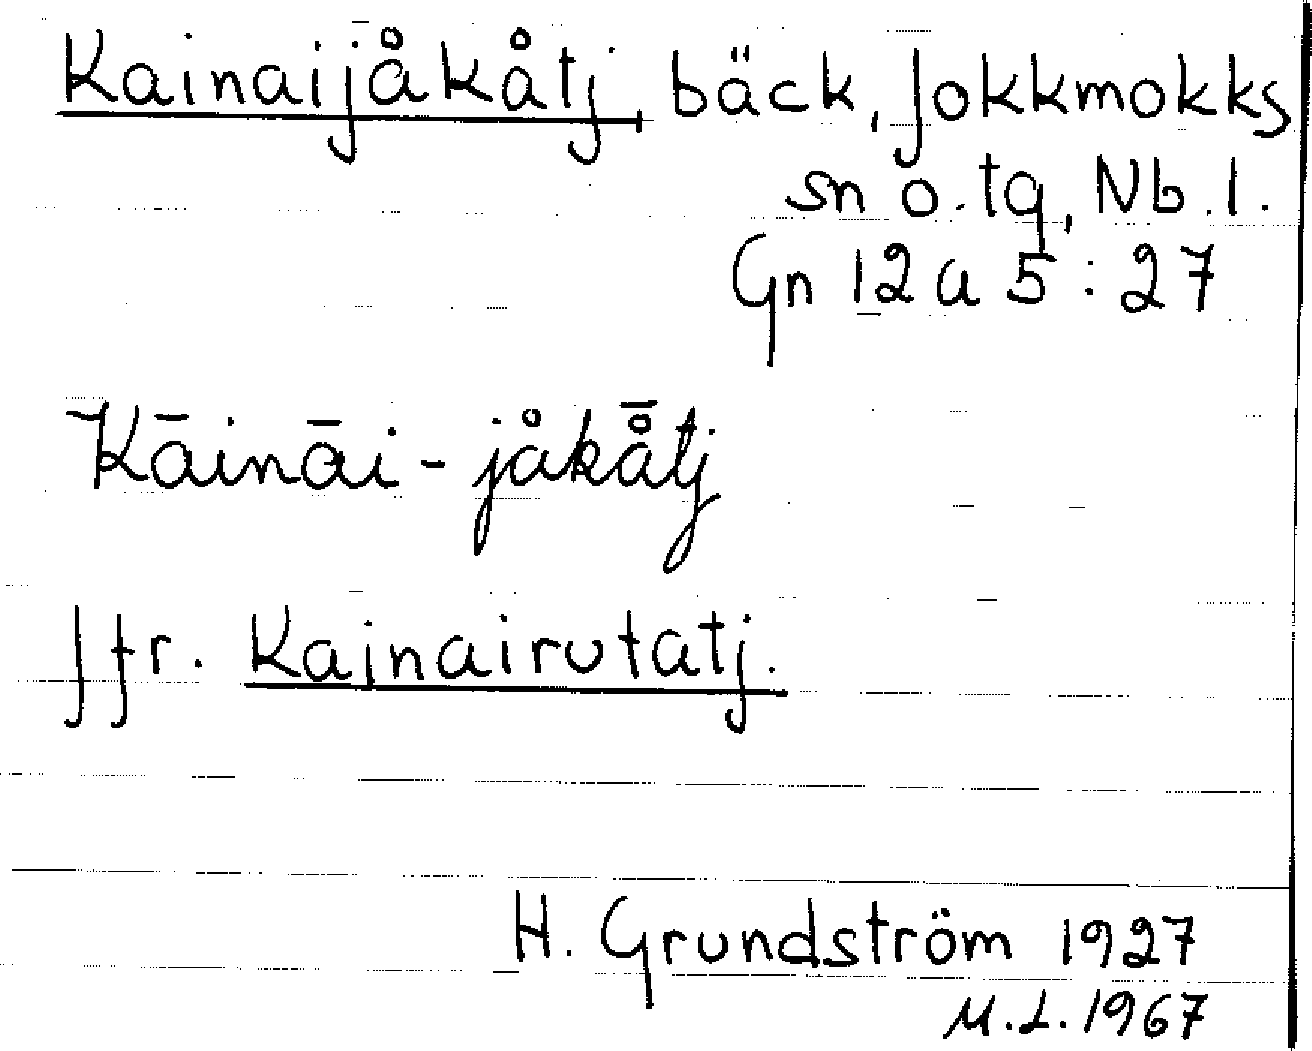 Kainaijåkåtj, bäck, Jokkmokks
sn o. tg, Nb. l.
Gn 12 a 5:27
Kāināi-jåkå̄tj
Jfr. Kainairutatj.
H. Grundström 1927
M.L. 1967